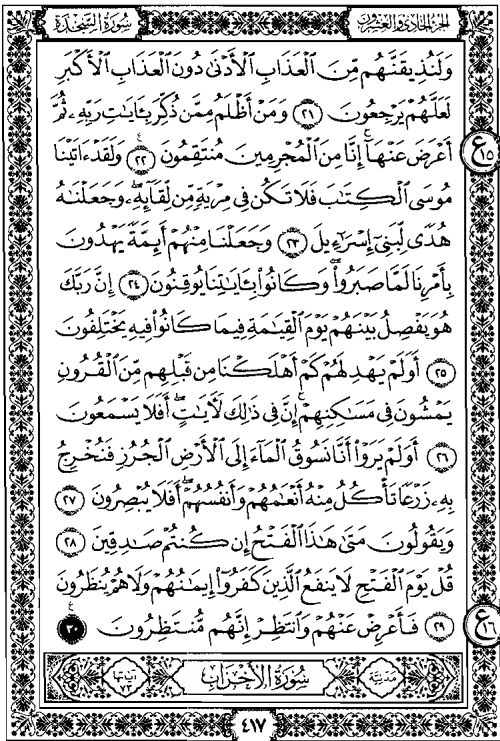 سُورَةُ السَّجْدَةِ الجزء الحادي والعشرون
وَلَنُذِيقَنَّهُم مِّنَ ٱلْعَذَابِ ٱلْأَدْنَىٰ دُونَ ٱلْعَذَابِ ٱلْأَكْبَرِ
لَعَلَّهُمْ يَرْجِعُونَ ٢١ وَمَنْ أَظْلَمُ مِمَّن ذُكِّرَ بِـَٔايَـٰتِ رَبِّهِۦ ثُمَّ
أَعْرَضَ عَنْهَآ ۚ إِنَّا مِنَ ٱلْمُجْرِمِينَ مُنتَقِمُونَ ٢٢ وَلَقَدْ ءَاتَيْنَا
ع ١٥
مُوسَى ٱلْكِتَـٰبَ فَلَا تَكُن فِى مِرْيَةٍ مِّن لِّقَآئِهِۦ ۖ وَجَعَلْنَـٰهُ
هُدًى لِّبَنِىٓ إِسْرَٰٓءِيلَ ٢٣ وَجَعَلْنَا مِنْهُمْ أَئِمَّةً يَهْدُونَ
بِأَمْرِنَا لَمَّا صَبَرُوا۟ ۖ وَكَانُوا۟ بِـَٔايَـٰتِنَا يُوقِنُونَ ٢٤ إِنَّ رَبَّكَ
هُوَ يَفْصِلُ بَيْنَهُمْ يَوْمَ ٱلْقِيَـٰمَةِ فِيمَا كَانُوا۟ فِيهِ يَخْتَلِفُونَ
٢٥ أَوَلَمْ يَهْدِ لَهُمْ كَمْ أَهْلَكْنَا مِن قَبْلِهِم مِّنَ ٱلْقُرُونِ
يَمْشُونَ فِى مَسَـٰكِنِهِمْ ۚ إِنَّ فِى ذَٰلِكَ لَـَٔايَـٰتٍ ۖ أَفَلَا يَسْمَعُونَ
٢٦ أَوَلَمْ يَرَوْا۟ أَنَّا نَسُوقُ ٱلْمَآءَ إِلَى ٱلْأَرْضِ ٱلْجُرُزِ فَنُخْرِجُ
بِهِۦ زَرْعًا تَأْكُلُ مِنْهُ أَنْعَـٰمُهُمْ وَأَنفُسُهُمْ ۖ أَفَلَا يُبْصِرُونَ ٢٧
وَيَقُولُونَ مَتَىٰ هَـٰذَا ٱلْفَتْحُ إِن كُنتُمْ صَـٰدِقِينَ ٢٨
قُلْ يَوْمَ ٱلْفَتْحِ لَا يَنفَعُ ٱلَّذِينَ كَفَرُوٓا۟ إِيمَـٰنُهُمْ وَلَا هُمْ يُنظَرُونَ
٢٩ فَأَعْرِضْ عَنْهُمْ وَٱنتَظِرْ إِنَّهُم مُّنتَظِرُونَ ٣٠
ع ١٦
مدنية سُورَةُ الأَحْزَابِ آياتها ٧٣
٤١٧